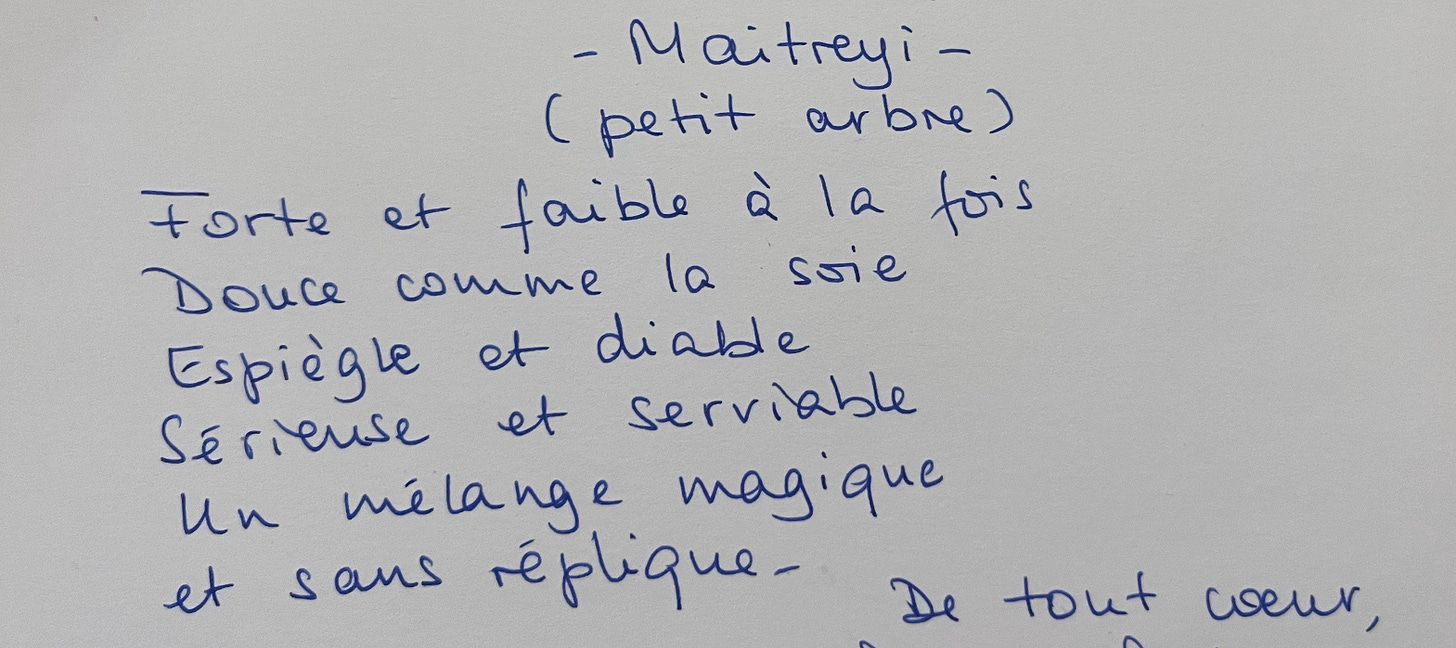 - Maitreyi -
(petit arbre)
Forte et faible à la fois
Douce comme la soie
Espiègle et diable
Sérieuse et serviable
Un mélange magique
et sans réplique -
De tout cœur,